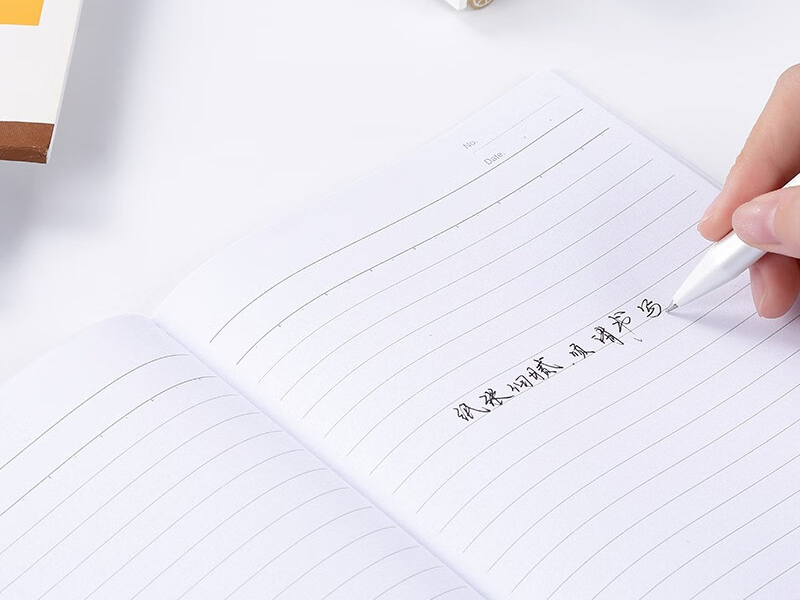 No.
Date
纸张细腻.顺滑书写